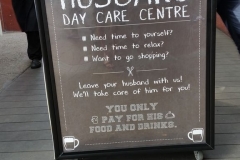 HUSBAND
DAY CARE CENTRE
Need time to yourself?
Need time to relax?
Want to go shopping?
Leave your husband with us!
We'll take care of him for you!
YOU ONLY
PAY FOR HIS
FOOD AND DRINKS.